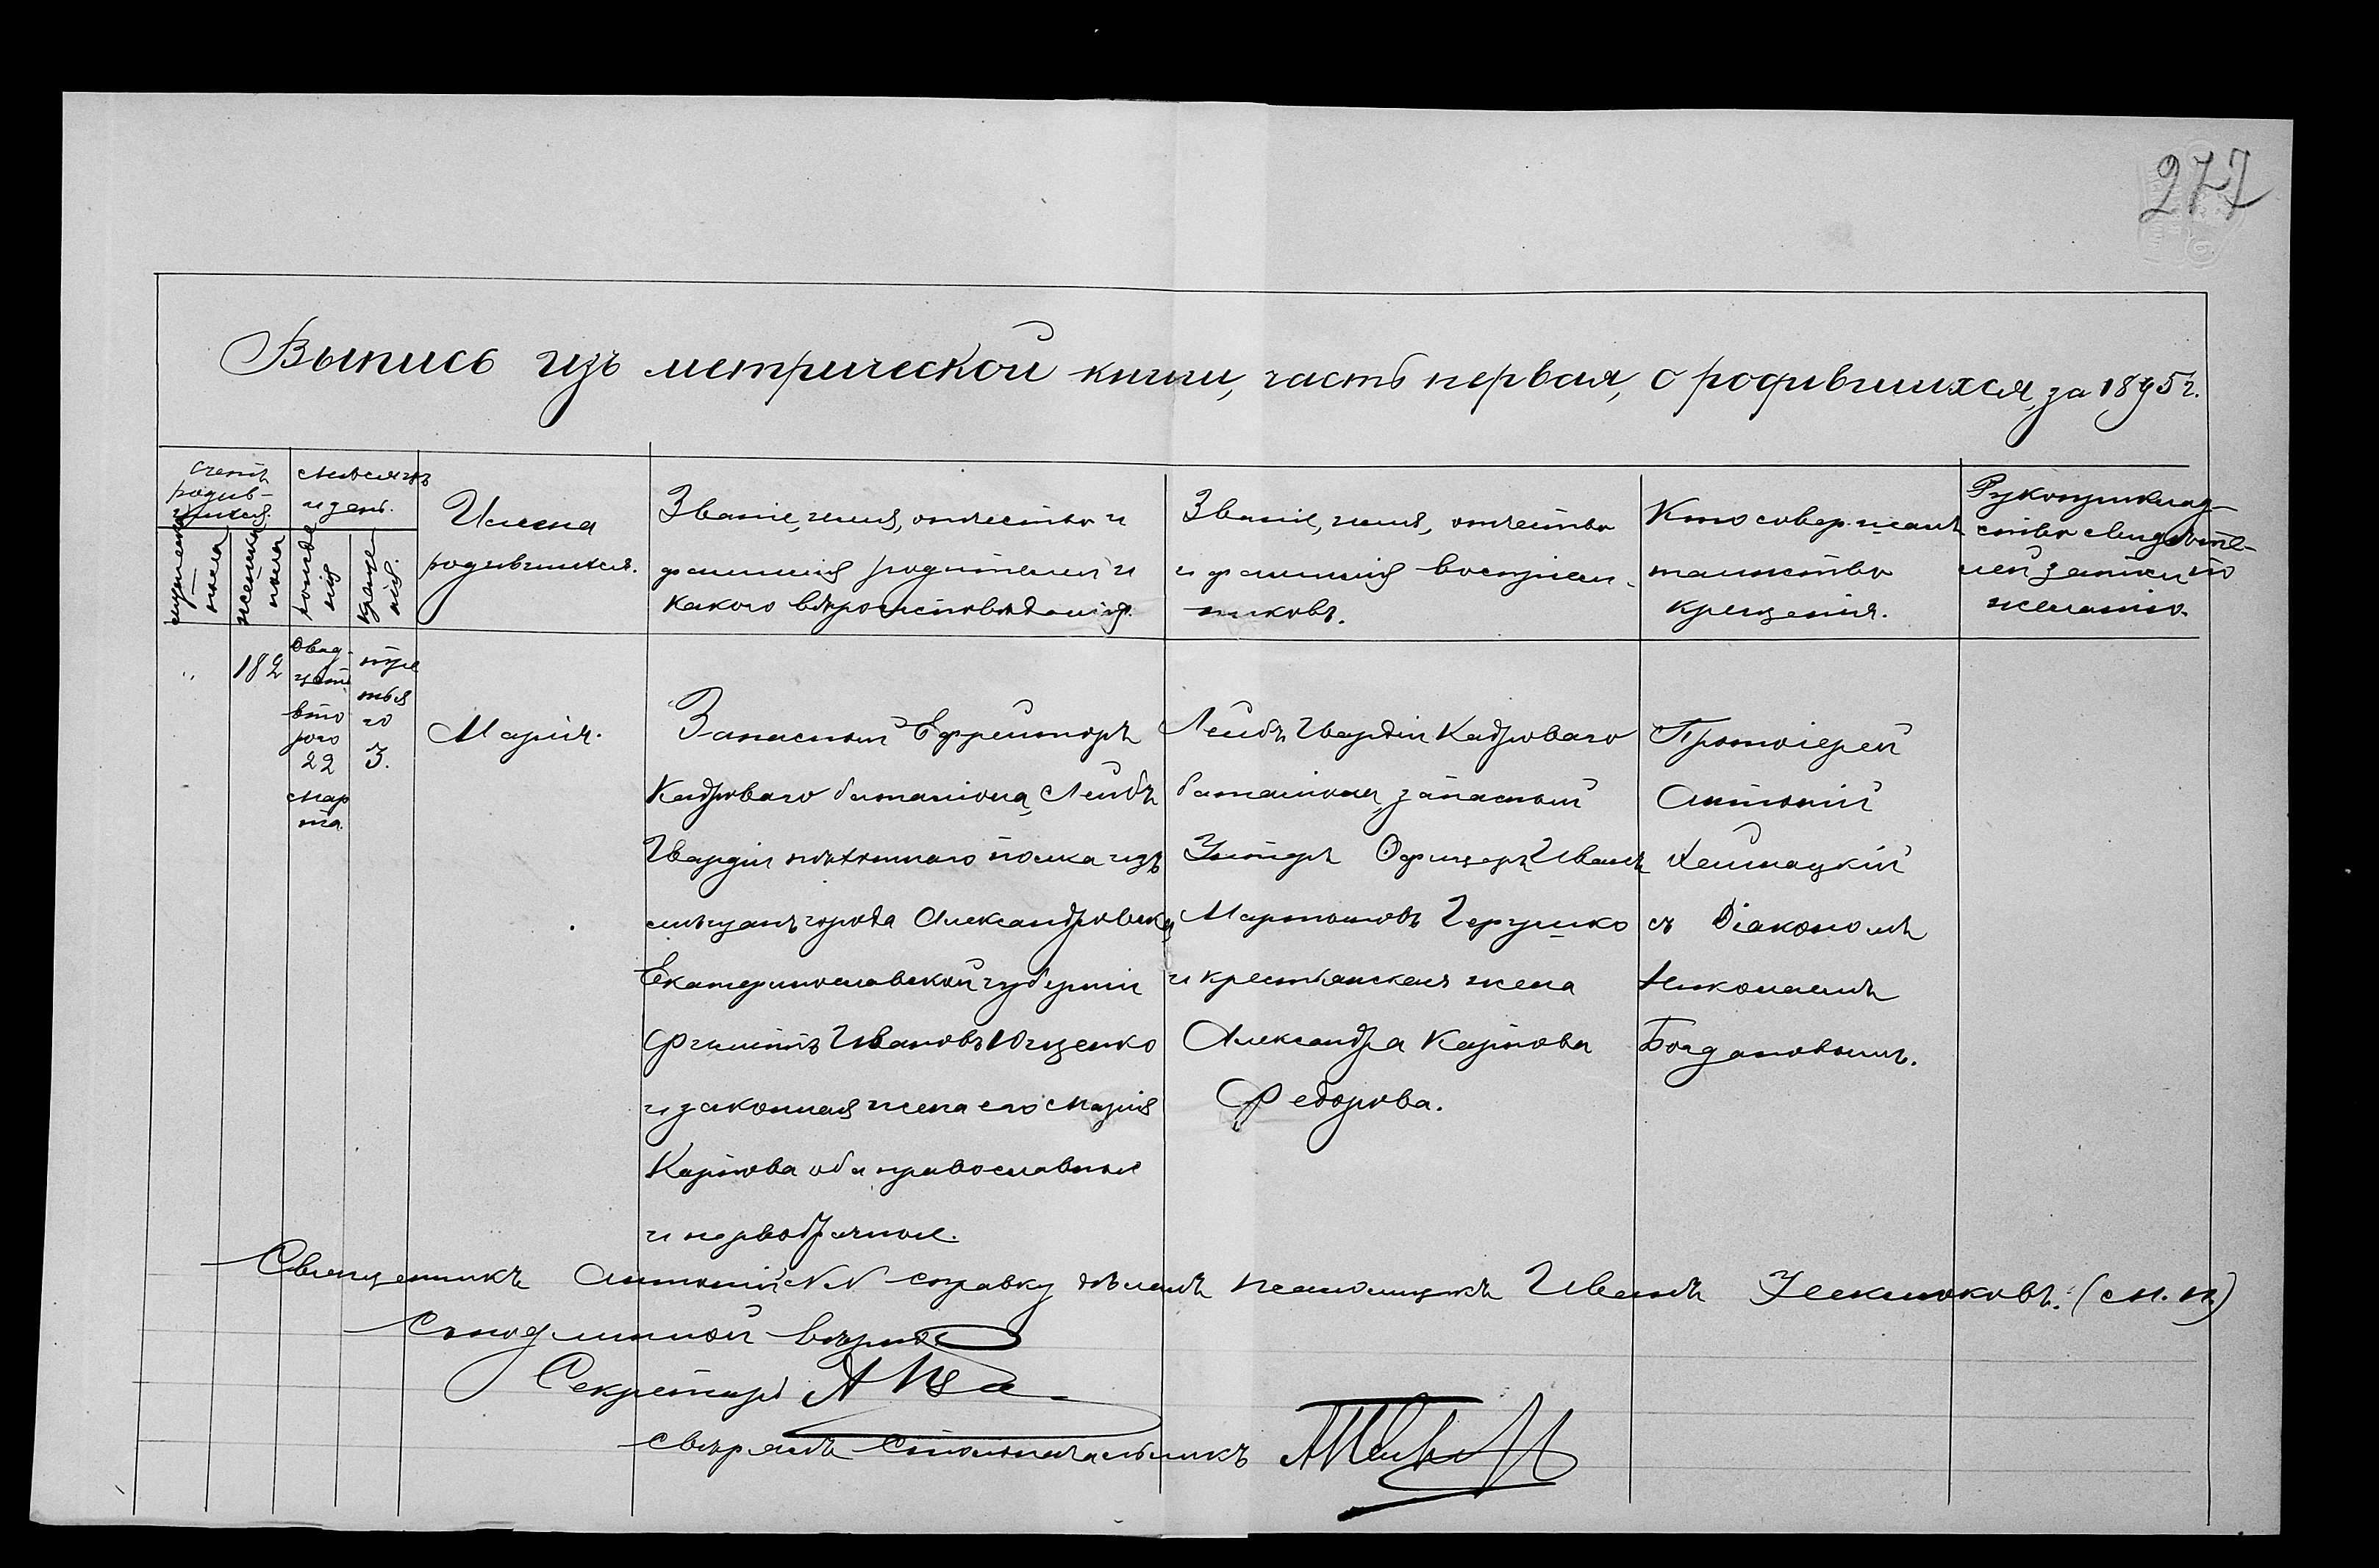 277
Выпись изъ метрической книги, часть первая, о родившихся, за 1895 г.
Счетъ
родив-
шихся.
мужеска
пола
женска
пола
Мѣсяцъ
и день.
рожде
нія
креще
нія.
Имена
родившихся.
Званіе, имя, отчество и
фамилія родителей и
какого вѣроисповѣданія.
Званіе, имя, отчество
и фамилія воспріем-
никовъ.
Кто совершалъ
таинство
крещенія.
Рукоприклад-
ство свидѣте-
лей записи по
желанію.
"
182
Двад-
цать
вто
рого
22
Мар
та.
тре
тья
го
3.
Марія.
Запасный Ефрейторъ
Кадроваго баталіона, Лейбъ
Гвардіи пѣхотнаго полка изъ
мѣщанъ города Александровска,
Екатеринославской губерніи
Филиппъ Ивановъ Ющенко
и законная жена его Марія
Карпова оба православные
и первобрачные.
Лейбъ Гвардіи Кадроваго
баталіона, запасный
Унтеръ Офицеръ Иванъ
Мартыновъ Гергушко
и крестьянская жена
Александра Карпова
Федорова.
Протоіерей
Антоній
съ Діакономъ
Николаемъ
Богдановымъ.
Священникъ Антоній NN справку дѣлалъ псаломщикъ Иванъ (М. П.)
Съ подлинной вѣрно
Секретарь
Свѣрялъ Столоначальникъ